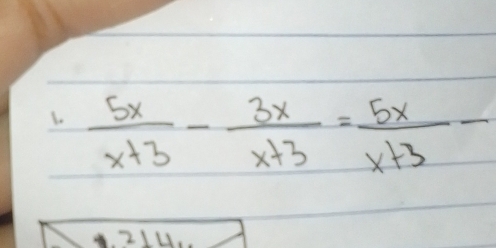 1. 5x/x+3 - 3x/x+3 = 5x/x+3 -